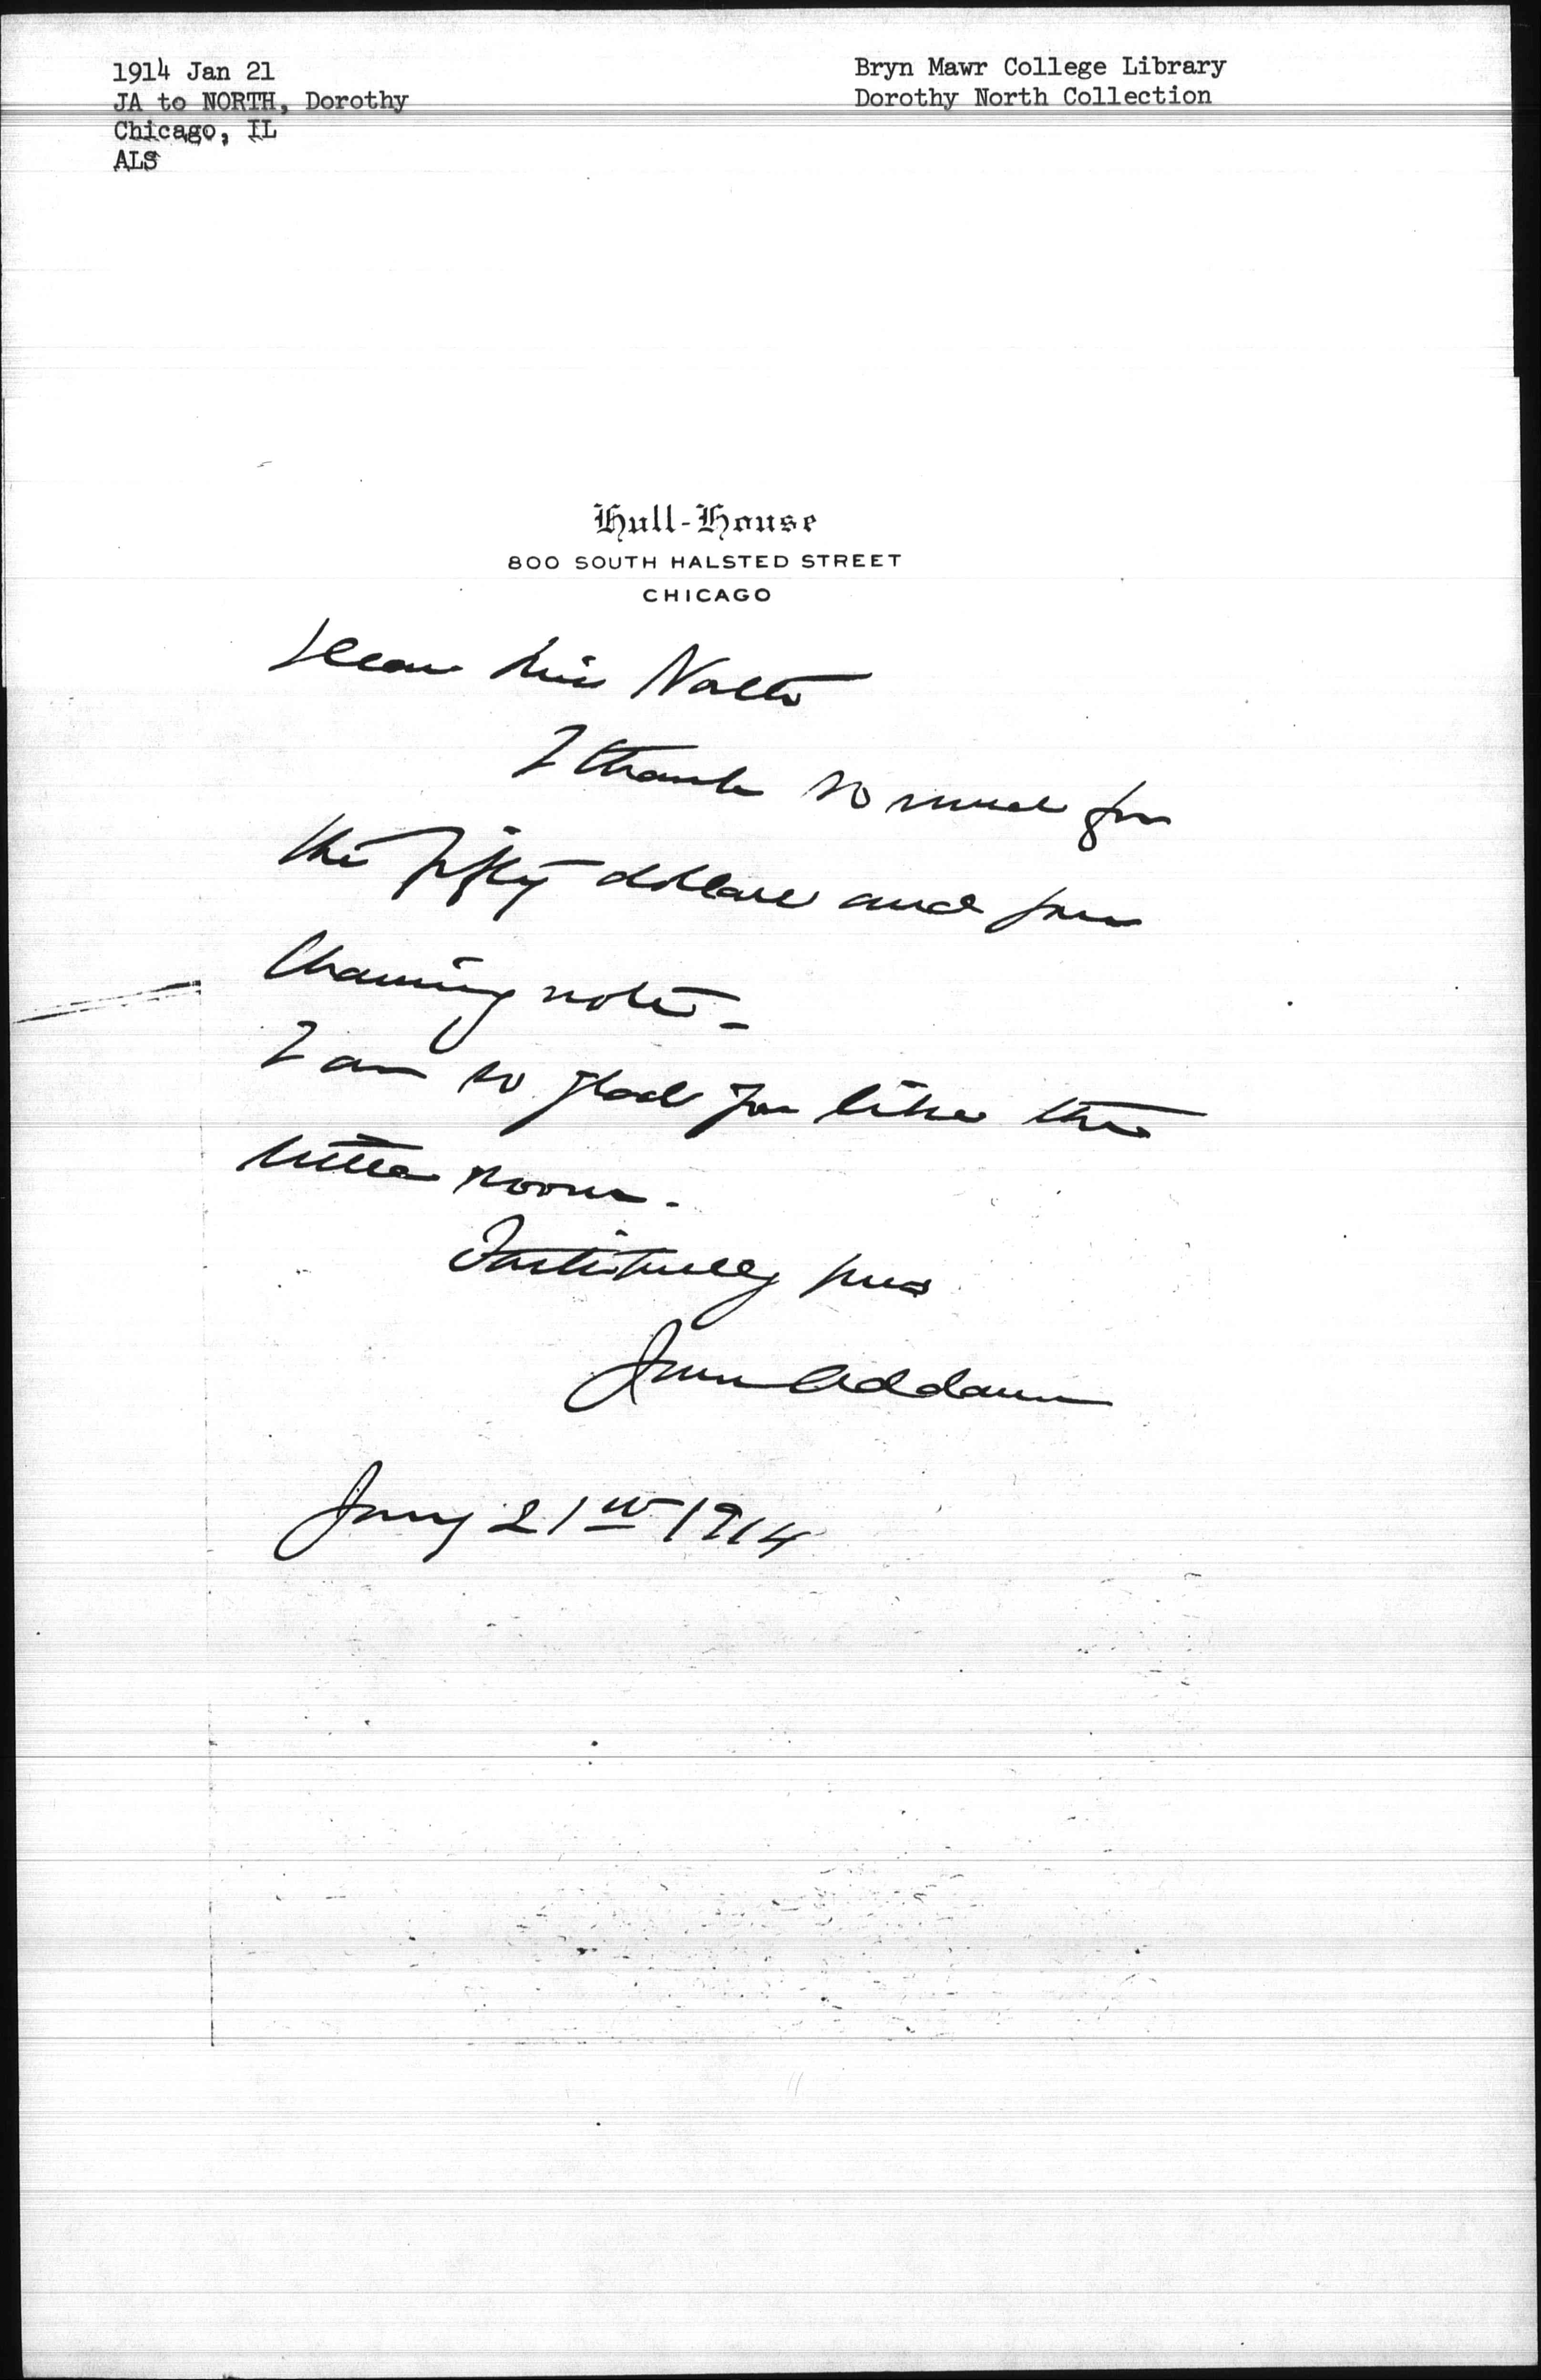 1914 Jan 21
JA to NORTH, Dorothy
Chicago, IL
ALS
Bryn Mawr College Library
Dorothy North Collection
Hull-House
800 SOUTH HALSTED STREET
CHICAGO
Dear Miss North
I thank so much for
the fifty dollars and your
charming note -
I am so glad you like the
little room.
Faithfully yours
Jane Addams
Jany 21st 1914